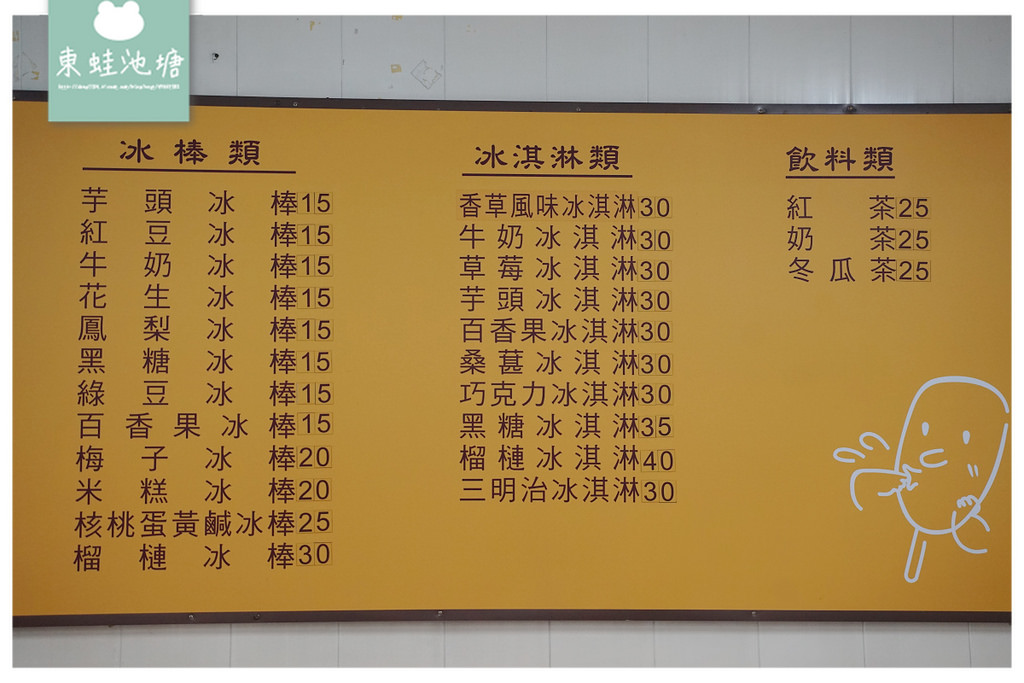 東蛙池塘
冰棒類
芋頭冰棒15
紅豆冰棒15
牛奶冰棒15
花生冰棒15
鳳梨冰棒15
黑糖冰棒15
綠豆冰棒15
百香果冰棒15
梅子冰棒20
米糕冰棒20
核桃蛋黃鹹冰棒25
榴槤冰棒30
冰淇淋類
香草風味冰淇淋30
牛奶冰淇淋30
草莓冰淇淋30
芋頭冰淇淋30
百香果冰淇淋30
桑葚冰淇淋30
巧克力冰淇淋30
黑糖冰淇淋35
榴槤冰淇淋40
三明治冰淇淋30
飲料類
紅茶25
奶茶25
冬瓜茶25